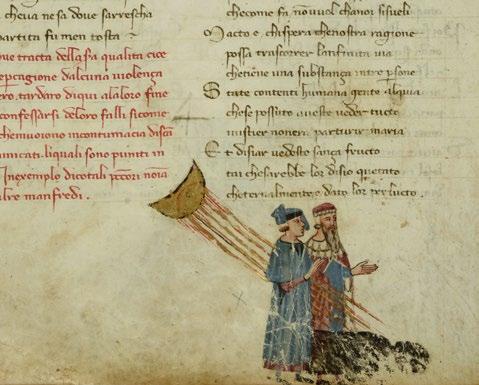 cheva ne sa dove sarrescha
partita fu men tosta
one tracta della sa qualita cioe
per cagione dalcuna violença
ero. tardaro di qui ala loro fine
confessarsi deloro falli sicome
che muoiono incontumacia discõ
municati. liquali sono puniti in
In exemplo di cotali pctori noia
alre manfredi.
che come fa non vuol cha noi si sveli
Macto e. chi spera che nostra ragione
possa trascorrer la infinita via
che tiene una substança in tre psone
State contenti humana gente al quia
che se possuto aveste veder tucto
mistier non era parturir maria
Et disiar vedeste sança fructo
tai che sarebbe lor disio quetato
che ternalmente e dato lor per lucto.